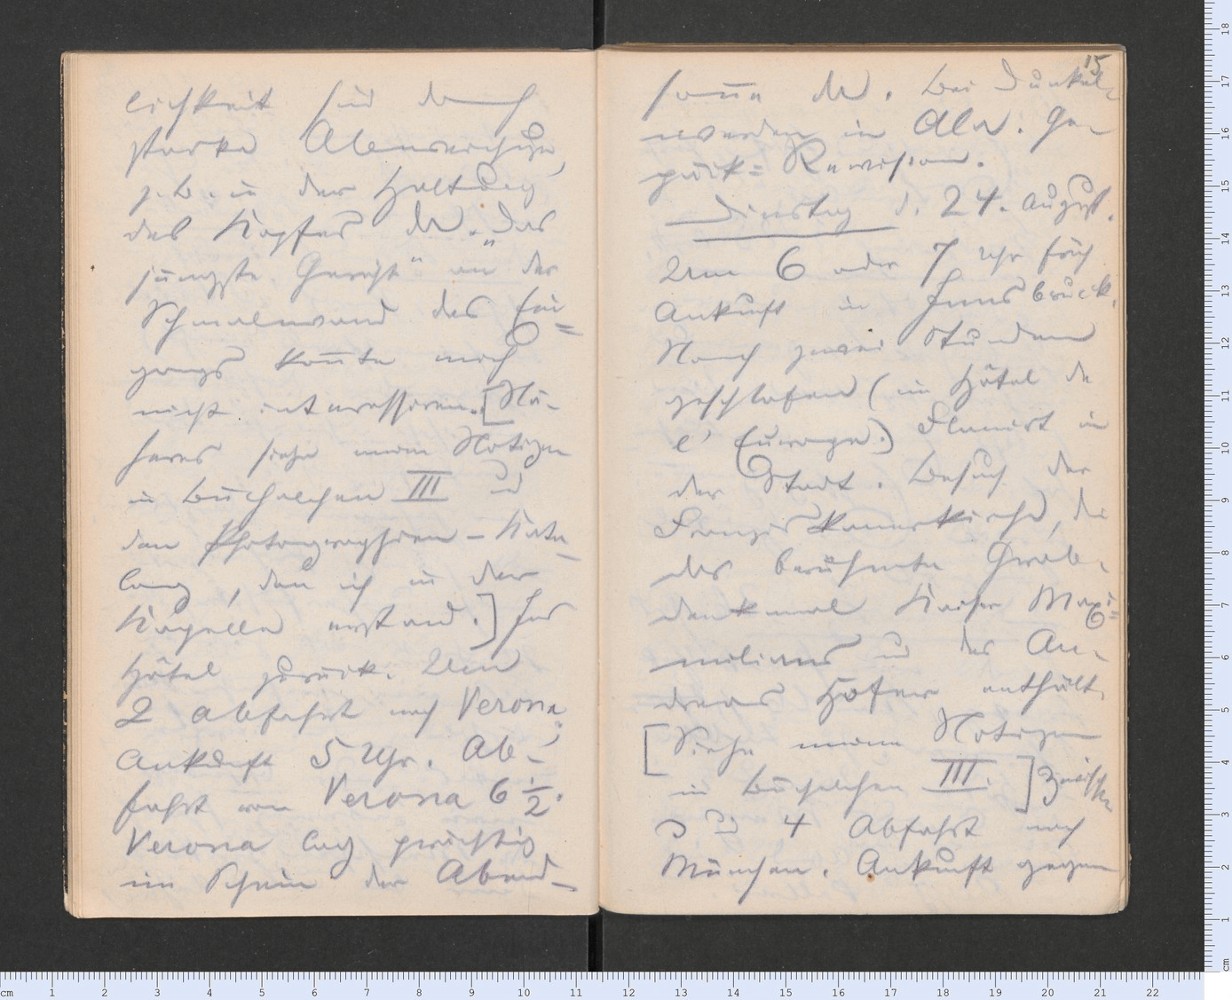 lichkeit sind doch
starke Abweichungen,
z. B. in der Haltung
des Kopfes da. „Das
jüngste Gericht“ an der
Schmalwand des Ein=
gangs konnte mich
nicht interessiren. [Nä-
heres siehe meine Notizen
in Büchelchen III und
den Photographien-Kata-
log, den ich in der
Kapelle erstand.] Ins
Hôtel zurück. Um
2 Abfahrt nach Verona;
Ankunft 5 Uhr. Ab-
fahrt von Verona 6 ½.
Verona lag prächtig
im Schein der Abend-
15
sonne da. Bei Dunkel-
werden in Ala. Ge-
päck-Revision.
Dinstag d. 24. August.
Um 6 oder 7 Uhr früh
Ankunft in Innsbruck.
Noch zwei Stunden
geschlafen (im Hôtel de
l'Europe.) Flanirt in
der Stadt. Besuch der
Franziskanerkirche, die
das berühmte Grab-
denkmal Kaiser Maxi=
milians und das An-
dreas Hofers enthält.
[Siehe meine Notizen
in Büchelchen III.] Zwischen
3 und 4 Abfahrt nach
München. Ankunft gegen